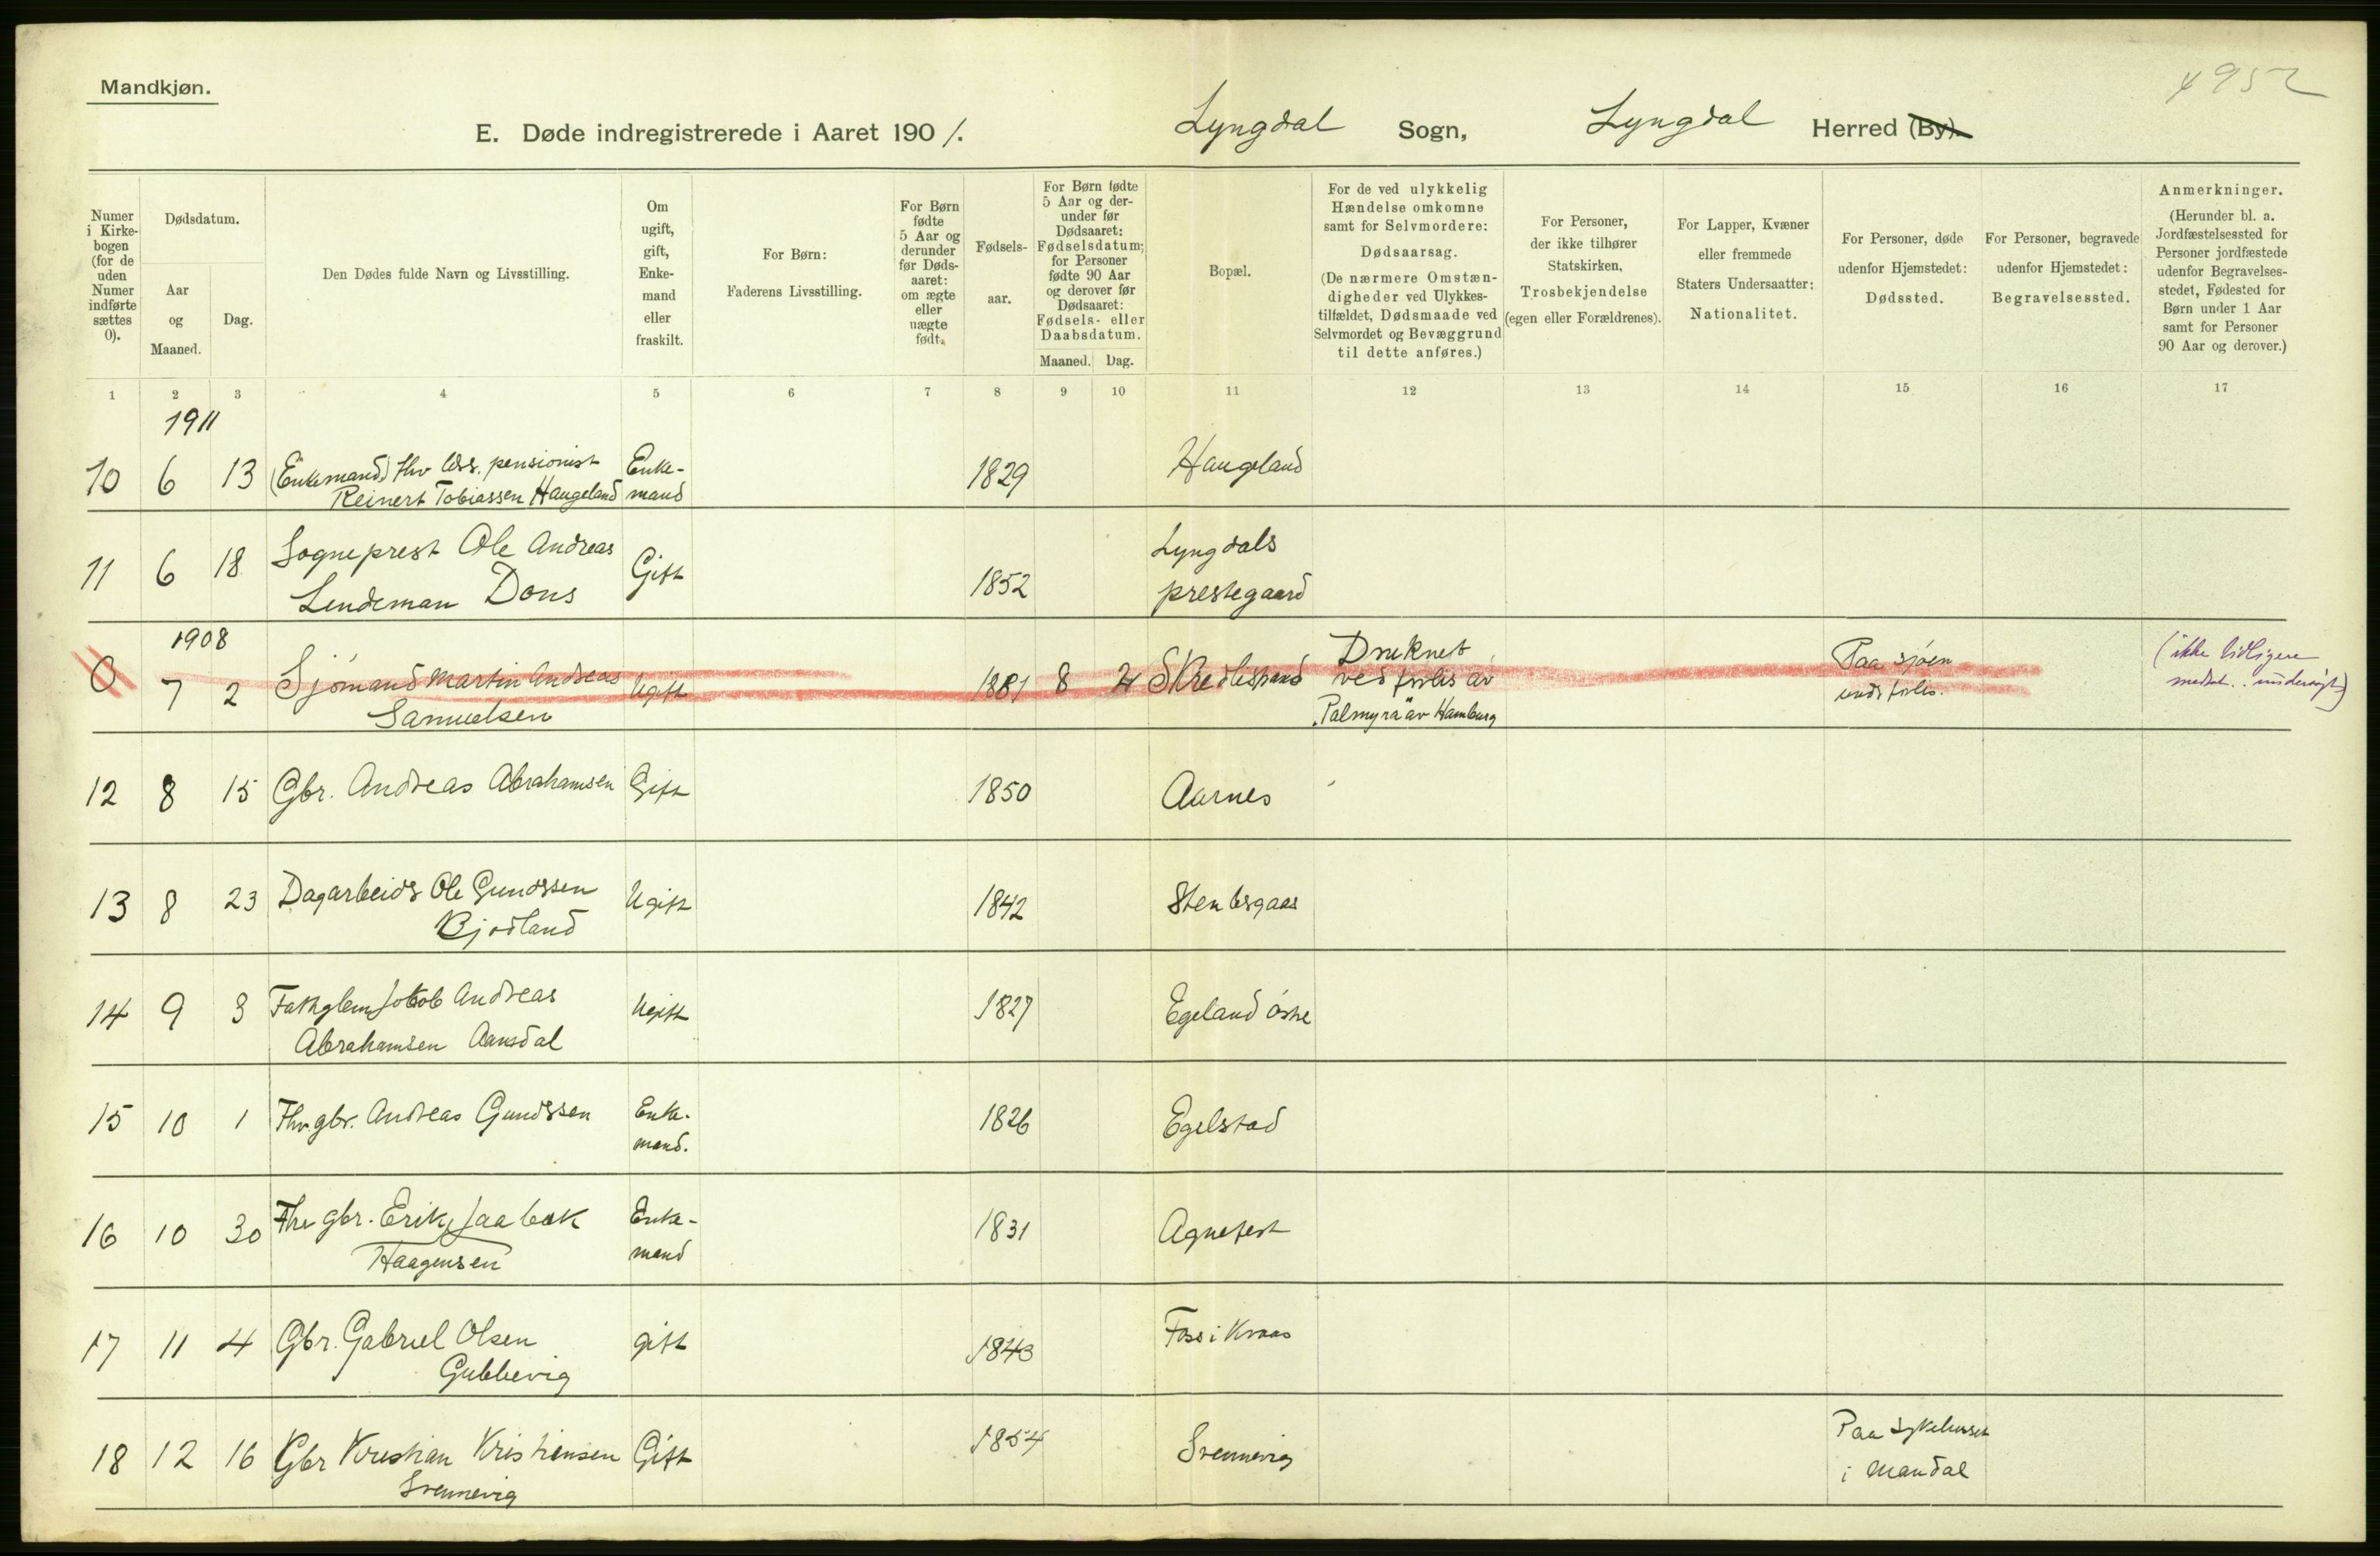 Mandkjøn.
4952
E. Døde indregistrerede i Aaret 190 1.
Lyngdal Sogn,
Lyngdal Herred (By).
Numer i Kirkebogen (for de uden Numer indførte sættes 0).
Dødsdatum.
Aar og Maaned.
Dag.
Den Dødes fulde Navn og Livsstilling.
Om ugift, gift, Enkemand eller fraskilt.
For Børn: Faderens Livsstilling.
For Børn fødte 5 Aar og derunder før Dødsaaret: om ægte eller uægte født.
Fødselsaar.
For Børn fødte 5 Aar og derunder før Dødsaaret: Fødselsdatum; for Personer fødte 90 Aar og derover før Dødsaaret: Fødsels- eller Daabsdatum.
Maaned. Dag.
Bopæl.
For de ved ulykkelig Hændelse omkomne samt for Selvmordere: Dødsaarsag.
(De nærmere Omstændigheder ved Ulykkestilfældet, Dødsmaade ved Selvmordet og Bevæggrund til dette anføres.)
For Personer, der ikke tilhører Statskirken, Trosbekjendelse (egen eller Forældrenes).
For Lapper, Kvæner eller fremmede Staters Undersaatter: Nationalitet.
For Personer, døde udenfor Hjemstedet: Dødssted.
For Personer, begravede udenfor Hjemstedet: Begravelsessted.
Anmerkninger.
(Herunder bl. a. Jordfæstelsessted for Personer jordfæstede udenfor Begravelsesstedet, Fødested for Børn under 1 Aar samt for Personer 90 Aar og derover.)
1 2 3 4 5 6 7 8 9 10 11 12 13 14 15 16 17
1911
10 6 13 (Enkemand) fhv pensionist Enke- 1829 Haugeland
Reinert Tobiassen Haugeland mand
11 6 18 Sogneprest Ole Andreas Gift 1852 Lyngdals
Lindeman Dons prestegaard
1908
0 7 2 Sjömand Martin Andreas Ugift 1881 8 Druknet ved forlis av Paa sjöen (ikke tidligere
Samuelsen "Palmyra" av Hamburg forlis.
12 8 15 Gbr. Andreas Abrahamsen Gift 1850 Aarnes
13 8 23 Dagarbeids Ole Gundssen Ugift 1842
14 9 3 Jakob Andreas Ugift 1827 Egeland östre
Abrahamsen
15 10 1 Fhv gbr. Andreas Gundssen Enke- 1826 Egelstad
mand.
16 10 30 Fhv gbr. Erik Enke- 1831 Agnefest
Haagensen mand
17 11 4 Gbr. Gabriel Olsen gift 1843 Foss i Kvaas
Gubbevig
18 12 16 Gbr Kristian Kristiensen Gift 1854 Svennevig Paa sykehuset
Svennevig i Mandal